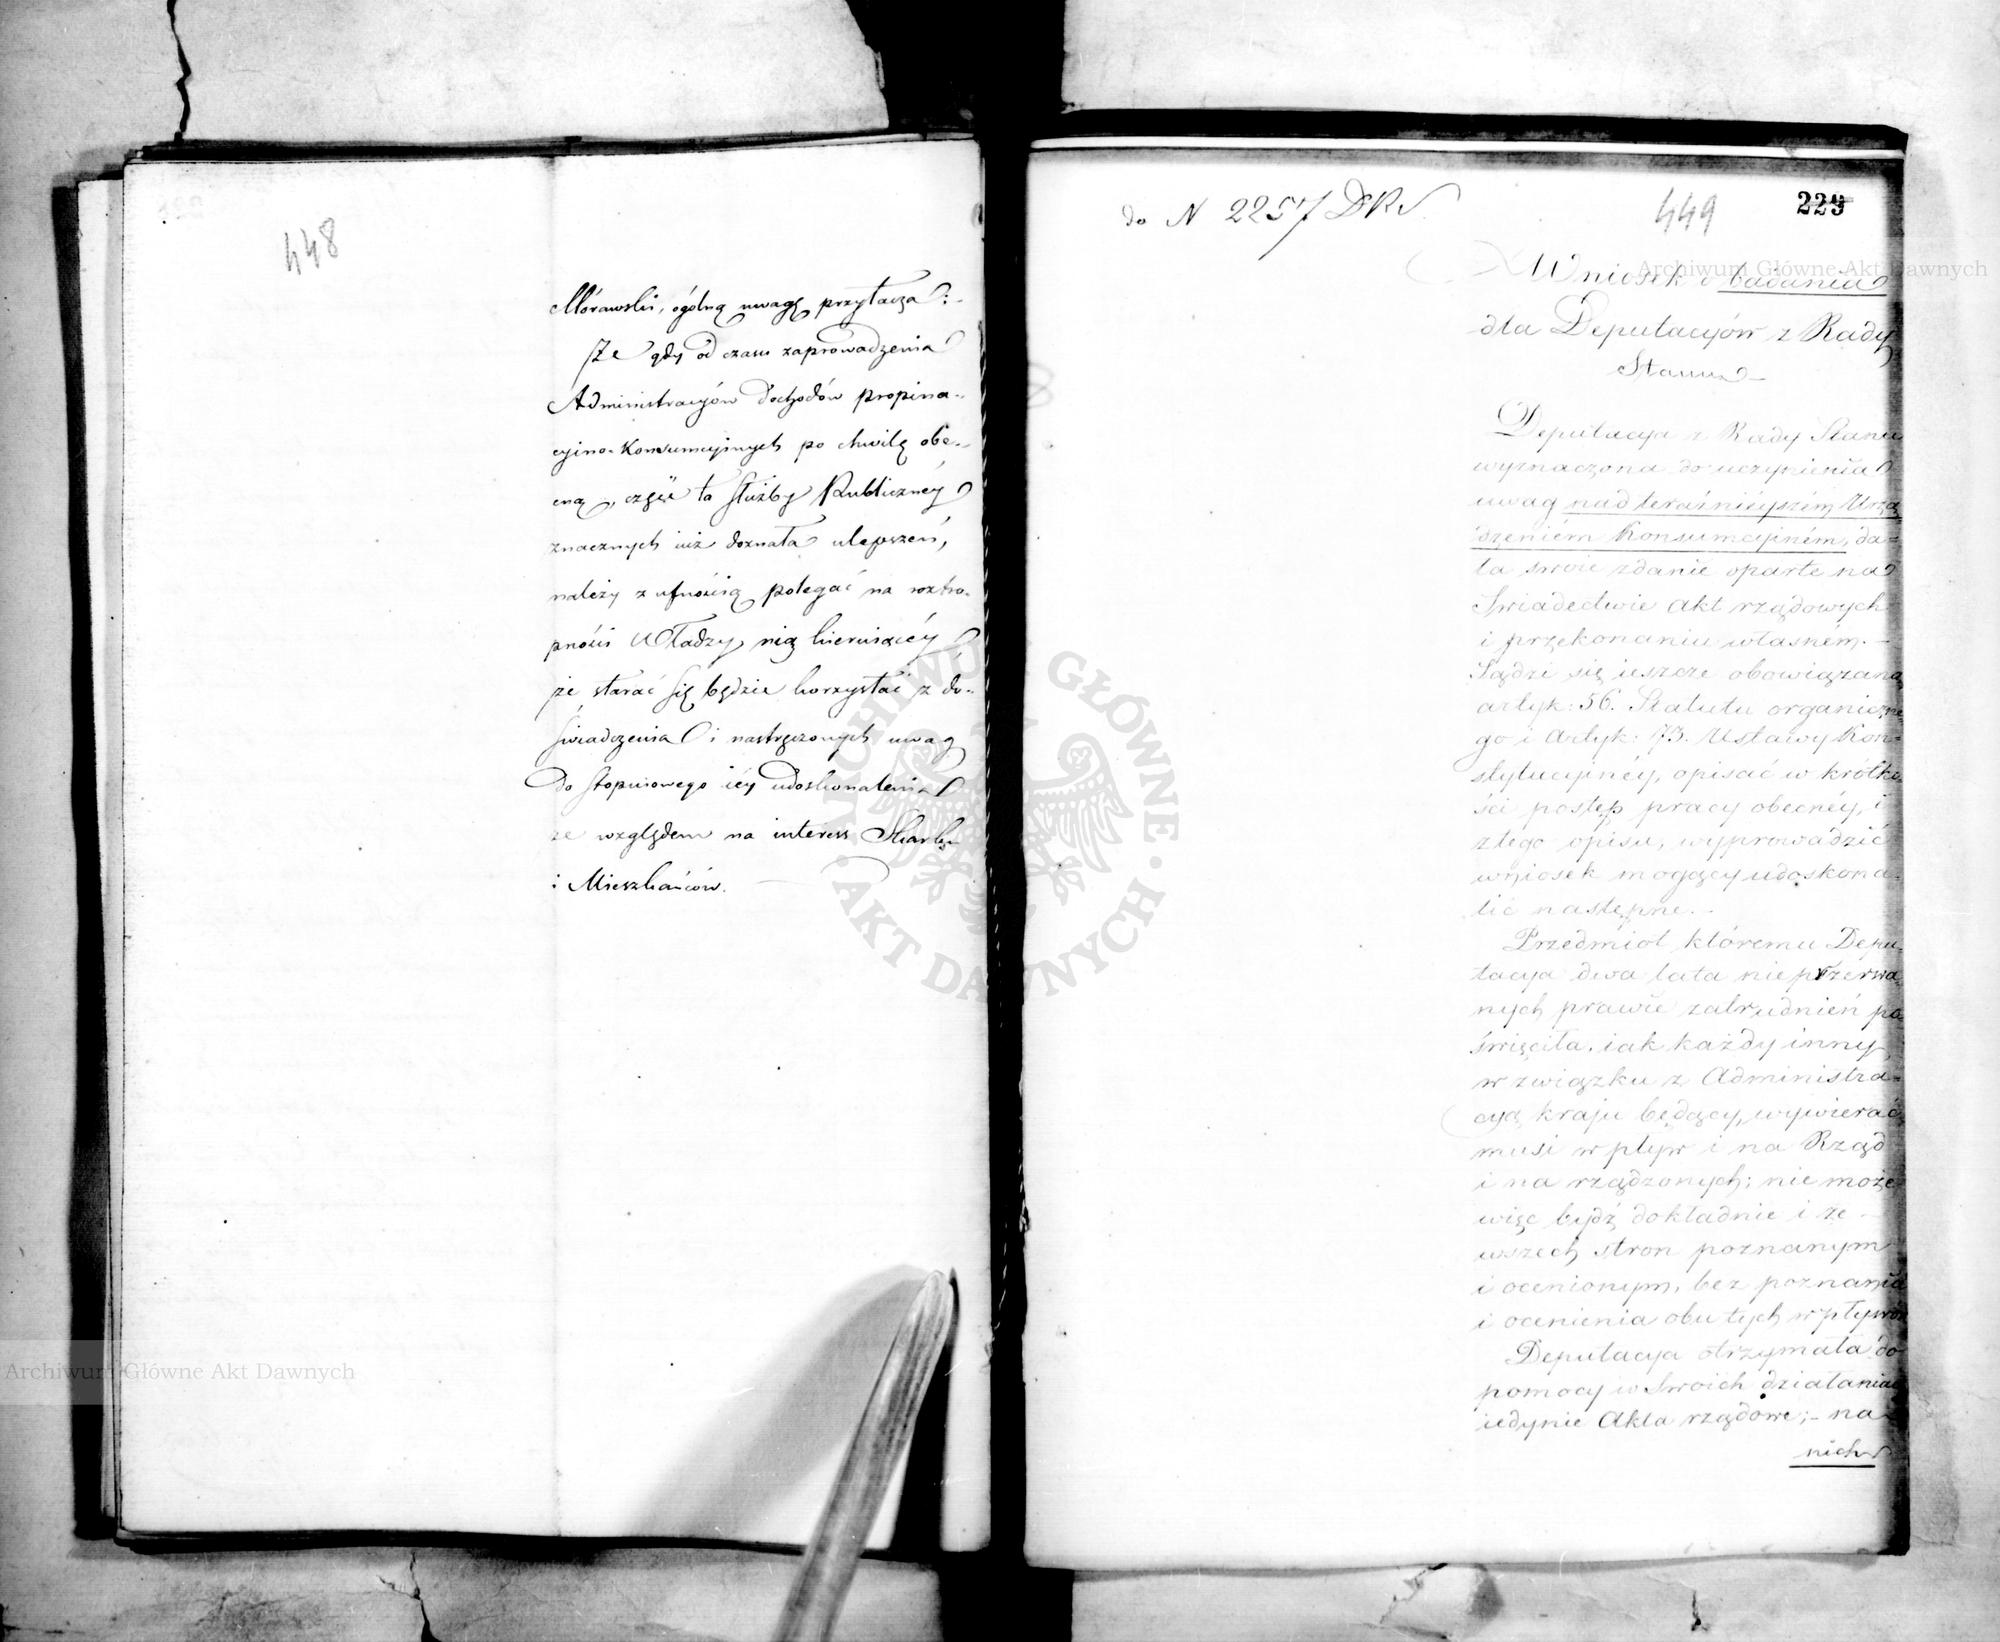 448
Mórawski, ogólną uwagę przytacza:
że gdy od czasu zaprowadzenia
Administracyów Dochodów propina-
cyino-Konsumcyinych po chwilę obe-
cną, część ta służby Publiczney
znacznych iuż doznała ulepszeń,
należy z ufnością polegać na roztro-
pności Władzy nią kieruiącéy
że starać się będzie korzystać z do-
świadczenia i nastręczonych uwag
do stopniowego iéy udoskonalenia
ze względem na interess Skarbu
i Mieszkańców.
do N 2257 DRS.
449
229
Wniosek o badania
dla Deputacyów z Rady
Stanu
Deputacya z Rady Stanu
wyznaczona do uczynienia
uwag nad teraźnieyszém Urzą-
dzeniém Konsumcyiném, da-
ła swoie zdanie oparte na
Świadectwie Akt rządowych
i przekonaniu własnem.
Sądzi się ieszcze obowiązaną
artyk: 56. Statutu organiczne-
go i Artyk: 73. Ustawy Kon-
stytucyinéy, opisać w krótko-
ści postęp pracy obecnéy, i
z tego opisu, wyprowadzić
wniosek mogący udoskona-
lić następne.
Przedmiot któremu Depu-
tacya dwa lata nieprzerwa-
nych prawie zatrudnień po-
święciła, iak każdy inny,
w związku z Administra-
cyą kraju będący, wywierać
musi wpływ i na Rząd
i na rządzonych; nie może
więc bydź dokładnie i ze
wszech stron poznanym
i ocenionym, bez poznania
i ocenienia obu tych wpływów
Deputacya otrzymała do
pomocy w Swoich działaniach
iedynie Akta rządowe; na
nich
Archiwum Główne Akt Dawnych
Archiwum Główne Akt Dawnych
ARCHIWUM GŁÓWNE AKT DAWNYCH